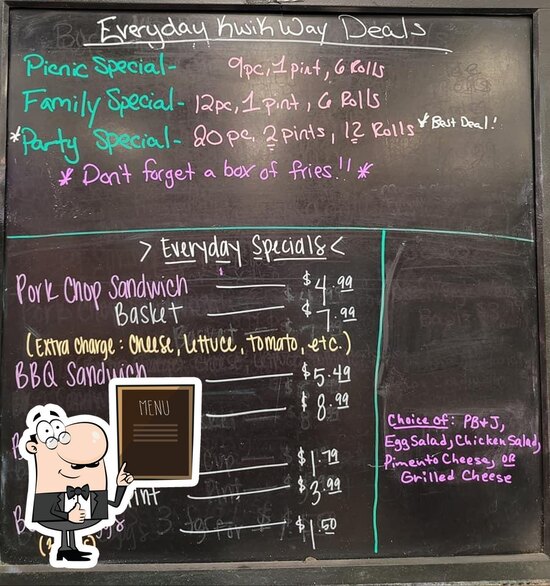 Everyday Kwik Way Deals
Picnic Special- 9pc, 1 pint, 6 Rolls
Family Special- 12pc, 1 pint, 6 Rolls
*Party Special- 20 pc, 2 pints, 12 Rolls *Best Deal!
* Don't forget a box of fries!! *
> Everyday Specials <
Pork Chop Sandwich $4.99
Basket $7.99
(Extra charge: Cheese, Lettuce, Tomato, etc.)
BBQ Sandwich $5.49
$8.99
$1.79
$3.99
$1.50
Choice of: PB+J,
Egg Salad, Chicken Salad,
Pimento Cheese, OR
Grilled Cheese
MENU